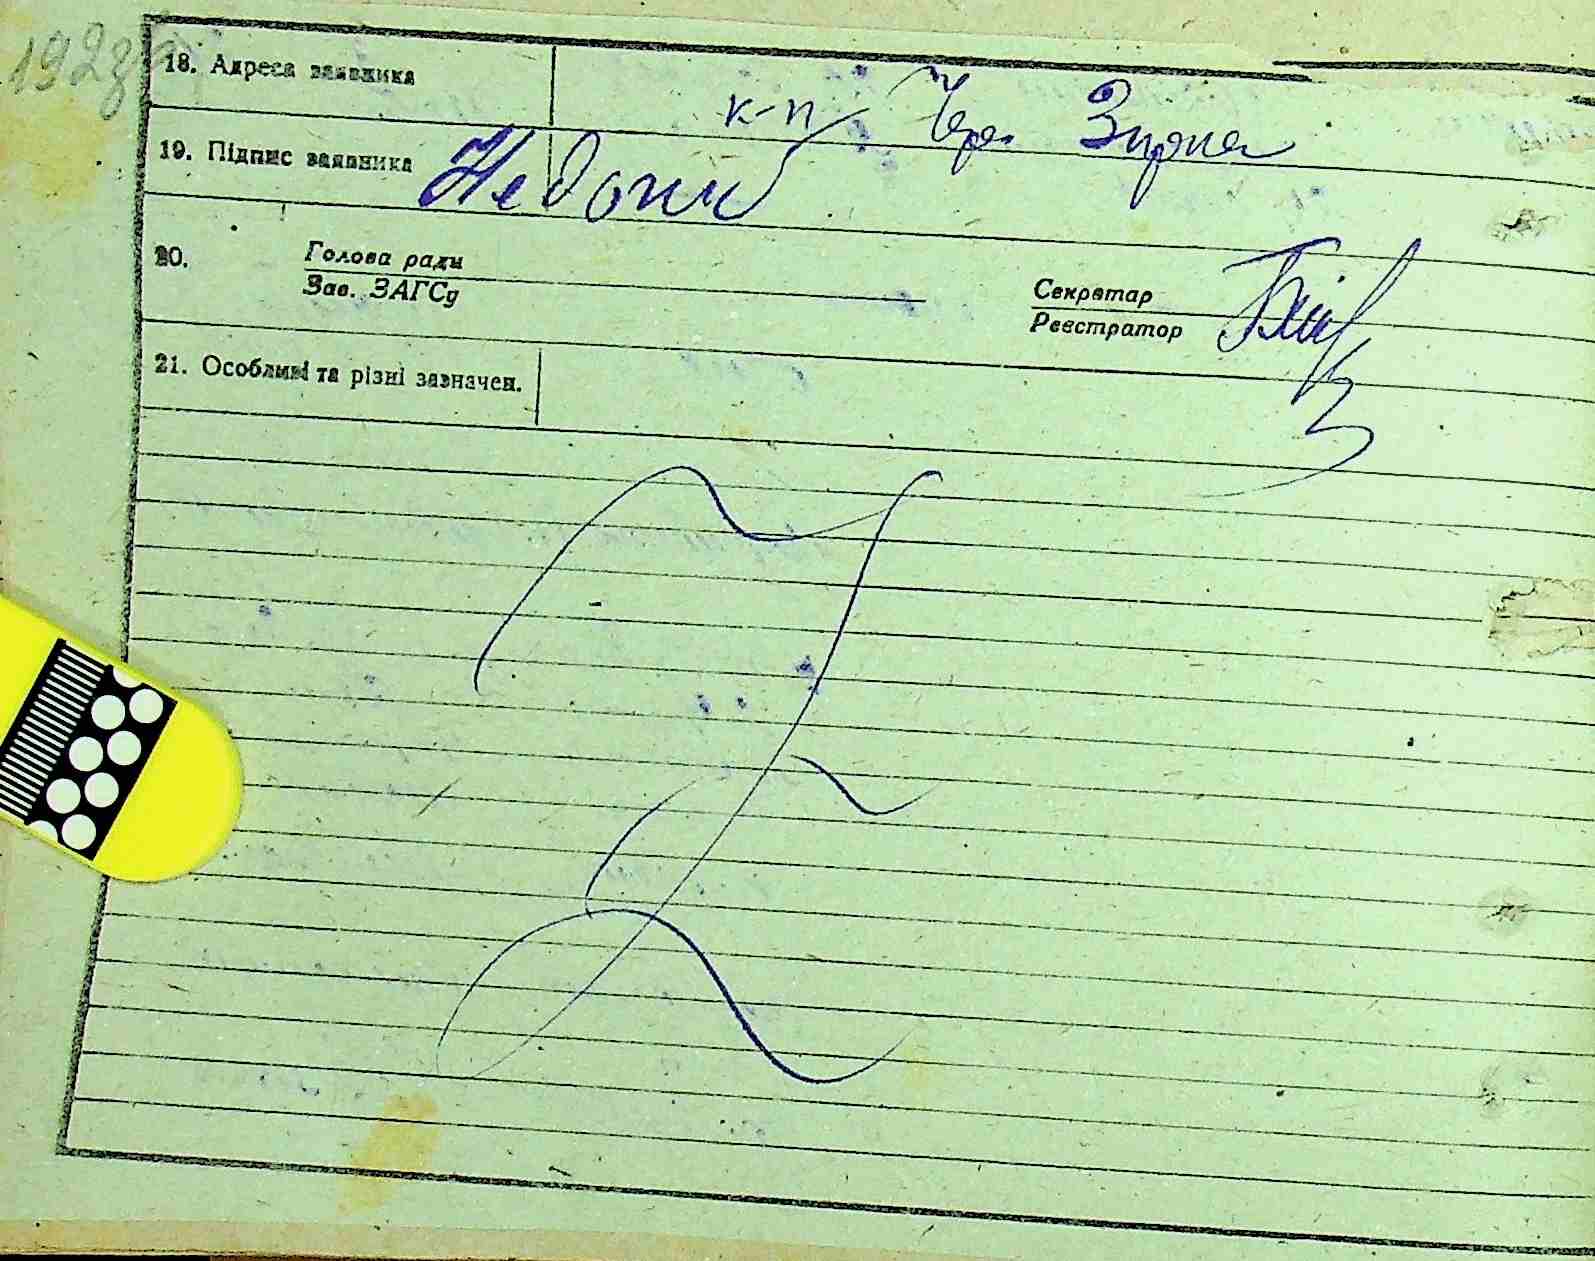 192
18. Адреса заявника к-п Чер. Зирка
19. Підпис заявника
20. Голова ради
Зав. ЗАГСу
Секретар
Реєстратор
21. Особливі та різні зазначен.